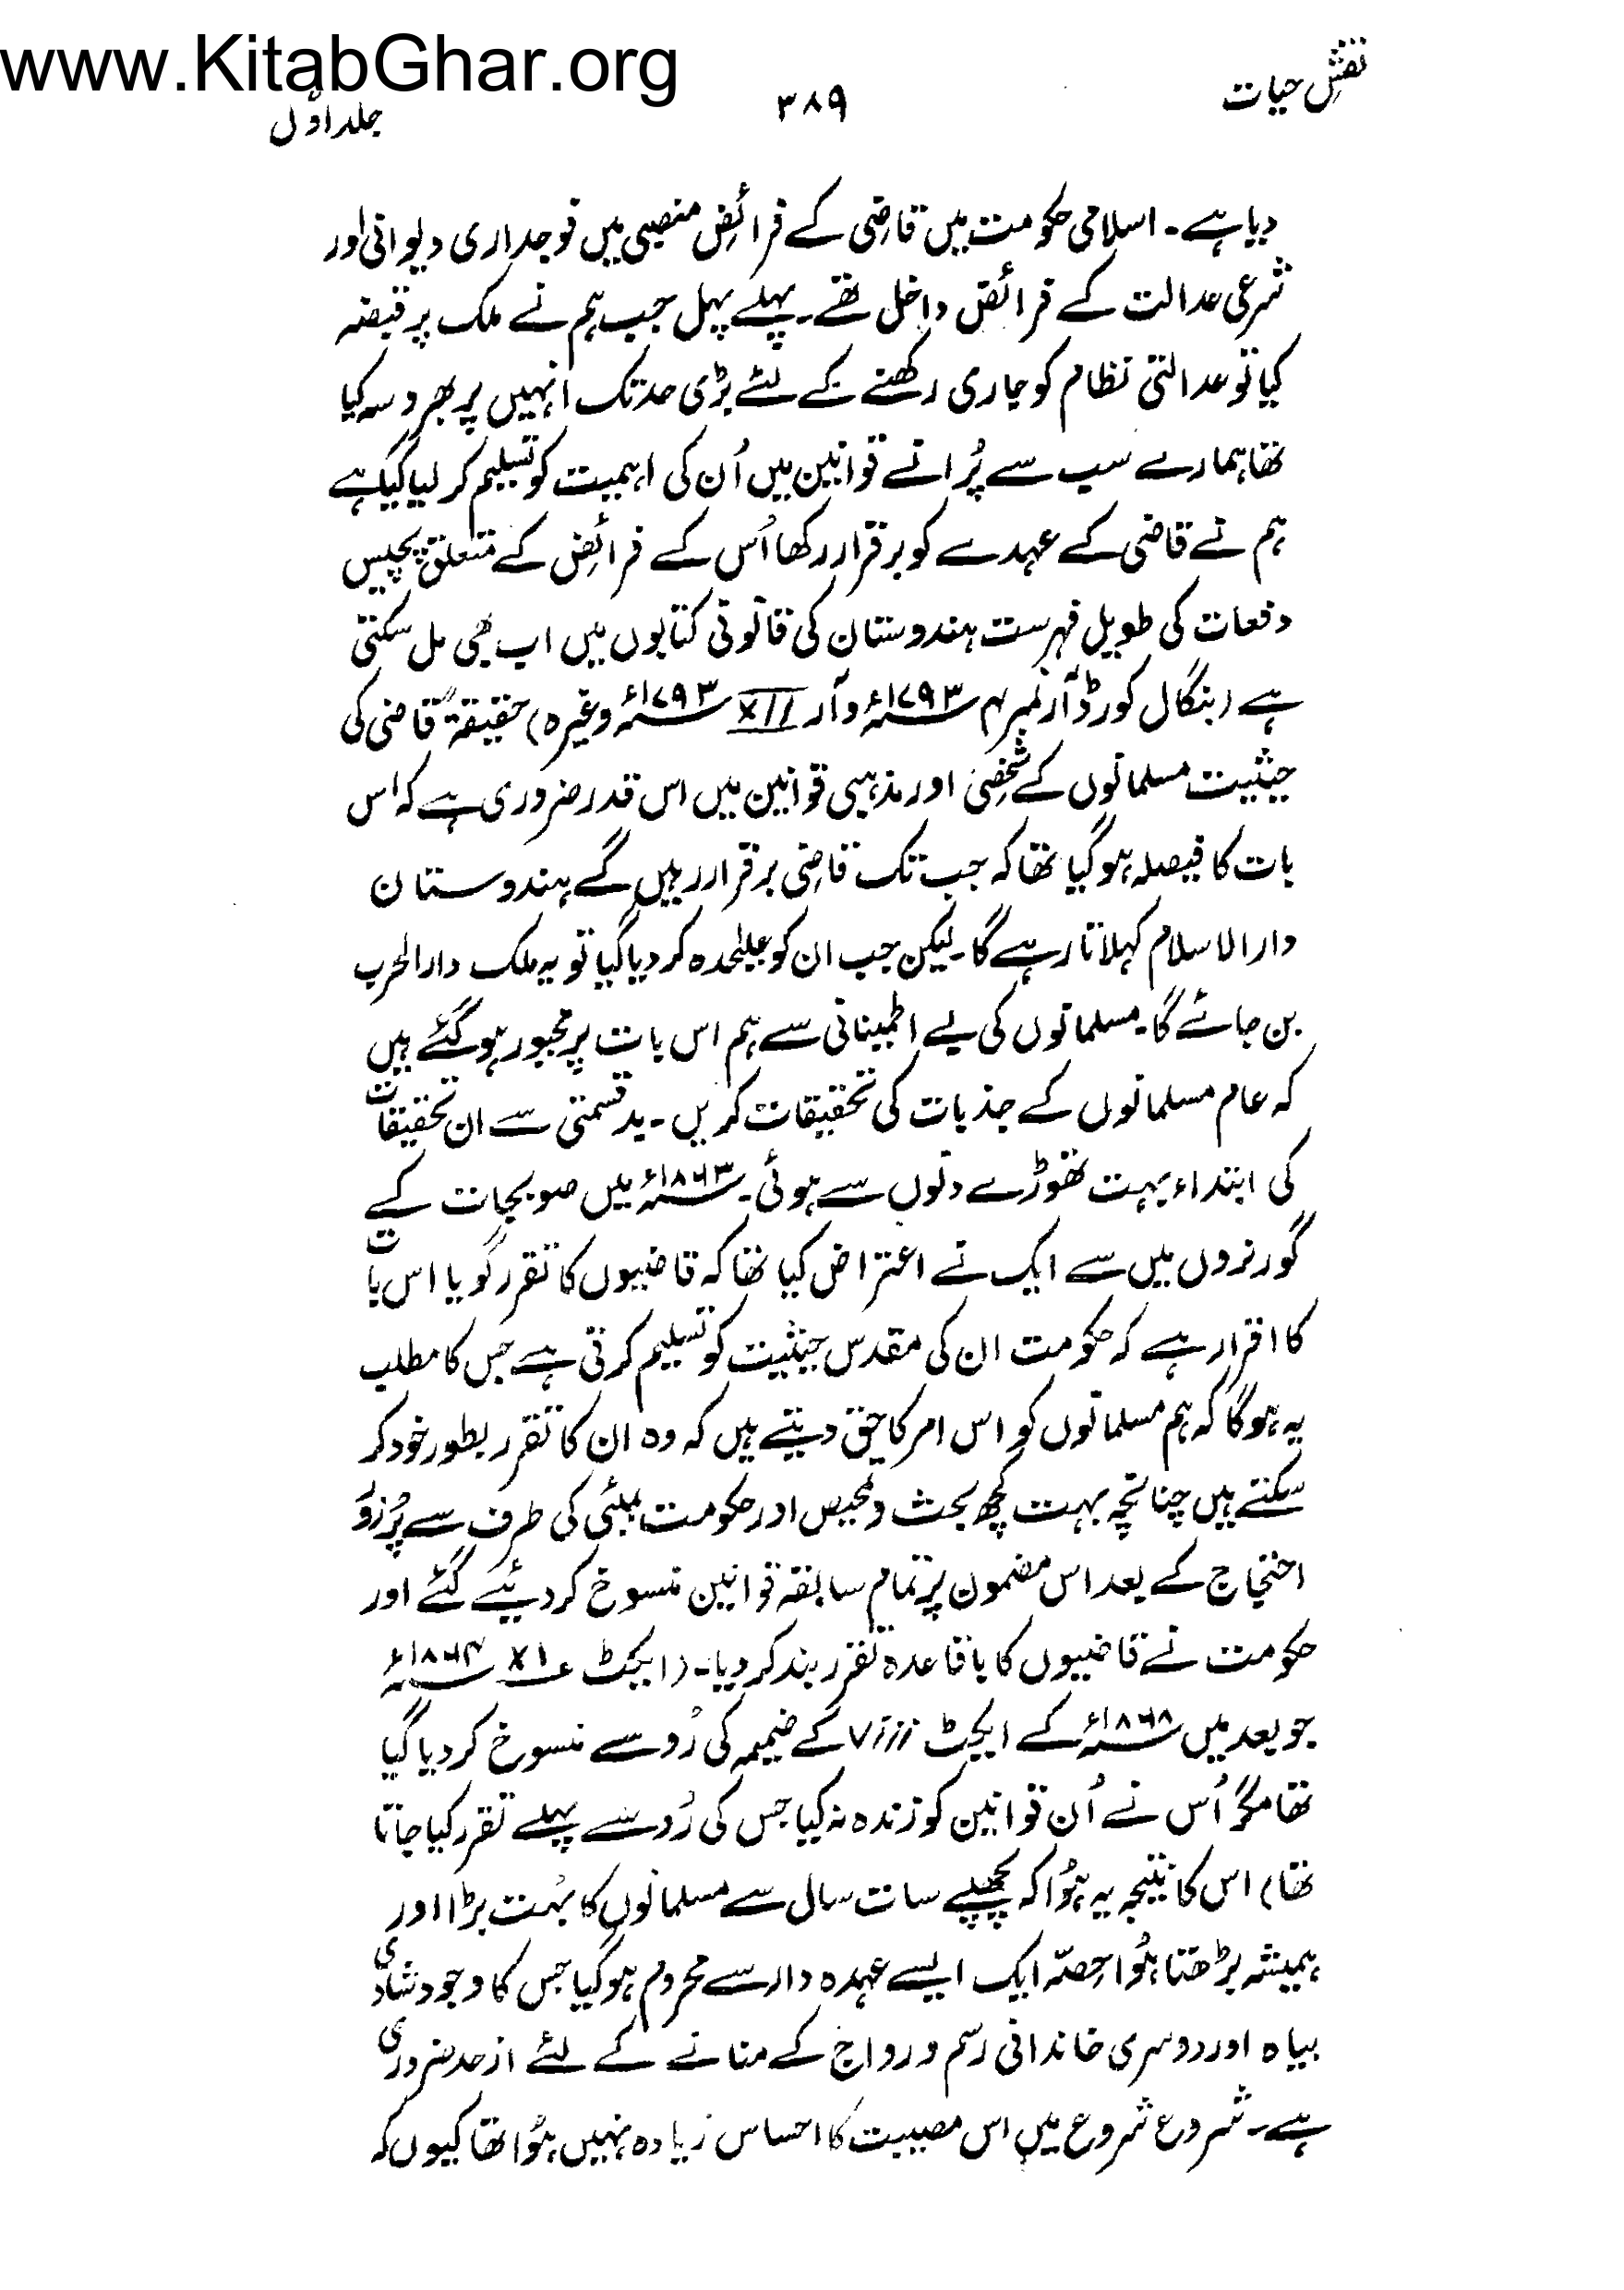 www.KitabGhar.org
نقشِ حیات
۳۸۹
جلد اوّل
دیا ہے۔ اسلامی حکومت میں قاضِی کے فرائض منصبی میں فوجداری دیوانی اور
شرعی عدالت کے فرائض داخل تھے۔ پہلے پہل جب ہم نے ملک پر قبضہ
کیا تو عدالتی نظام کو جاری رکھنے کے لئے بڑی حد تک انہیں پر بھروسہ کیا
تھا ہمارے سب سے پُرانے قوانین میں اُن کی اہمیت کو تسلیم کر لیا گیا ہے
ہم نے قاضی کے عہدے کو برقرار رکھا اُس کے فرائض کے متعلق پچیس
دفعات کی طویل فہرست ہندوستان کی قانونی کتابوں میں اب بھی مل سکتی
ہے (بنگال کورڈ آر نمبر ۴ ۱۷۹۳ء و آر XII ۱۷۹۳ء وغیرہ) حقیقۃً قاضی کی
حیثیت مسلمانوں کے شخصِی اور مذہبی قوانین میں اس قدر ضروری ہے کہ اس
بات کا فیصلہ ہو گیا تھا کہ جب تک قاضِی برقرار رہیں گے ہندوستان
دارالاسلام کہلاتا رہے گا۔ لیکن جب ان کو علیٰحدہ کر دیا گیا تو یہ ملک دارالحرب
بن جائے گا۔ مسلمانوں کی بے اطمینانی سے ہم اس بات پر مجبور ہو گئے ہیں
کہ عام مسلمانوں کے جذبات کی تحقیقات کریں۔ بدقسمتی سے ان تحقیقات
کی ابتداء بہت تھوڑے دنوں سے ہوئی۔ ۱۸۶۳ء میں صوبجات کے
گورنروں میں سے ایک نے اعتراض کیا تھا کہ قاضیوں کا تقرر گویا اس بات
کا اقرار ہے کہ حکومت ان کی مقدس حیثیت کو تسلیم کرتی ہے جس کا مطلب
یہ ہوگا کہ ہم مسلمانوں کو اس امر کا حق دیتے ہیں کہ وہ ان کا تقرر بطور خود کر
سکتے ہیں چنانچہ بہت کچھ بحث و تمحیص اور حکومت بمبئی کی طرف سے پُرزور
احتجاج کے بعد اس مضمون پر تمام سابقہ قوانین منسوخ کر دیئے گئے اور
حکومت نے قاضیوں کا باقاعدہ تقرر بند کر دیا۔ (ایکٹ ؏ XI ۱۸۶۴ء
جو بعد میں ۱۸۶۸ء کے ایکٹ viii کے ضمیمہ کی رُو سے منسوخ کر دیا گیا
تھا مگر اُس نے اُن قوانین کو زندہ نہ کیا جس کی رُو سے پہلے تقرر کیا جاتا
تھا) اس کا نتیجہ یہ ہُوا کہ پچھلے سات سال سے مسلمانوں کا بہت بڑا اور
ہمیشہ بڑھتا ہُوا حِصّہ ایک ایسے عہدہ دار سے محروم ہو گیا جس کا وجود شادی
بیاہ اور دوسری خاندانی رسم و رواج کے منانے کے لئے از حد ضروری
ہے۔ شروع شروع میں اس مصیبت کا احساس زیادہ نہیں ہُوا تھا کیوں کہ